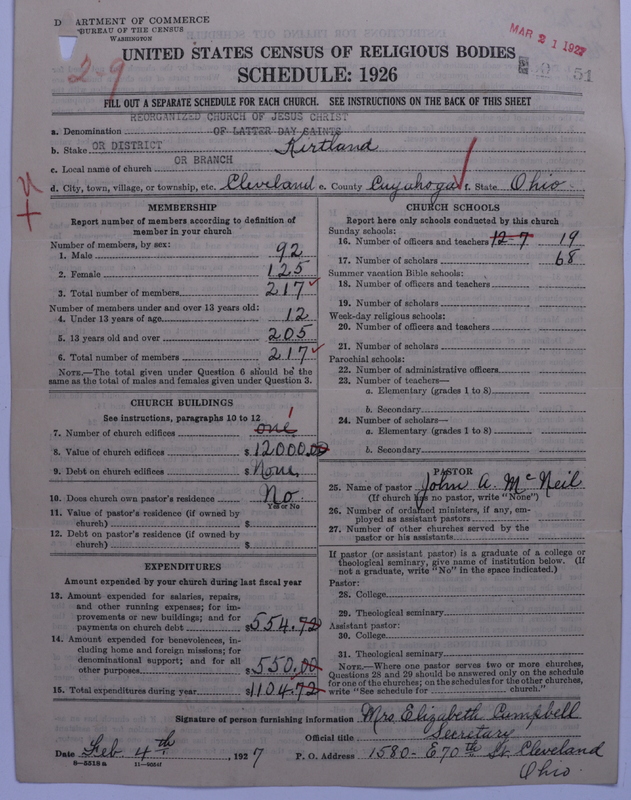 DEPARTMENT OF COMMERCE
BUREAU OF THE CENSUS
WASHINGTON
MAR 21 1927
2-9
UNITED STATES CENSUS OF RELIGIOUS BODIES
SCHEDULE: 1926
51
FILL OUT A SEPARATE SCHEDULE FOR EACH CHURCH. SEE INSTRUCTIONS ON THE BACK OF THIS SHEET
REORGANIZED CHURCH OF JESUS CHRIST
a. Denomination OF LATTER DAY SAINTS
b. Stake OR DISTRICT Kirtland
c. Local name of church OR BRANCH
d. City, town, village, or township, etc. Cleveland e. County Cuyahoga f. State Ohio
MEMBERSHIP
Report number of members according to definition of
member in your church
Number of members, by sex:
1. Male 92
2. Female 125
3. Total number of members 217
Number of members under and over 13 years old:
4. Under 13 years of age 12
5. 13 years old and over 205
6. Total number of members 217
NOTE.—The total given under Question 6 should be the
same as the total of males and females given under Question 3.
CHURCH BUILDINGS
See instructions, paragraphs 10 to 12
7. Number of church edifices one 1
8. Value of church edifices $ 12000.00
9. Debt on church edifices $ None
10. Does church own pastor's residence No
Yes or No
11. Value of pastor's residence (if owned by
church) $
12. Debt on pastor's residence (if owned by
church) $
EXPENDITURES
Amount expended by your church during last fiscal year
13. Amount expended for salaries, repairs,
and other running expenses; for im-
provements or new buildings; and for
payments on church debt $ 554.72
14. Amount expended for benevolences, in-
cluding home and foreign missions; for
denominational support; and for all
other purposes $ 550.00
15. Total expenditures during year $ 1104.72
CHURCH SCHOOLS
Report here only schools conducted by this church
Sunday schools:
16. Number of officers and teachers 12-7 19
17. Number of scholars 68
Summer vacation Bible schools:
18. Number of officers and teachers
19. Number of scholars
Week-day religious schools:
20. Number of officers and teachers
21. Number of scholars
Parochial schools:
22. Number of administrative officers
23. Number of teachers—
a. Elementary (grades 1 to 8)
b. Secondary
24. Number of scholars—
a. Elementary (grades 1 to 8)
b. Secondary
PASTOR
25. Name of pastor John A. McNeil
(If church has no pastor, write "None")
26. Number of ordained ministers, if any, em-
ployed as assistant pastors
27. Number of other churches served by the
pastor or his assistants
If pastor (or assistant pastor) is a graduate of a college or
theological seminary, give name of institution below. (If
not a graduate, write "No" in the space indicated.)
Pastor:
28. College
29. Theological seminary
Assistant pastor:
30. College
31. Theological seminary
NOTE.—Where one pastor serves two or more churches,
Questions 28 and 29 should be answered only on the schedule
for one of the churches; on the schedules for the other churches,
write "See schedule for church."
Signature of person furnishing information Mrs Elizabeth Cumpbell
Official title Secretary
Date Feb 4th, 1927 P. O. Address 1580- E 70th St. Cleveland
Ohio.
8-5518 a